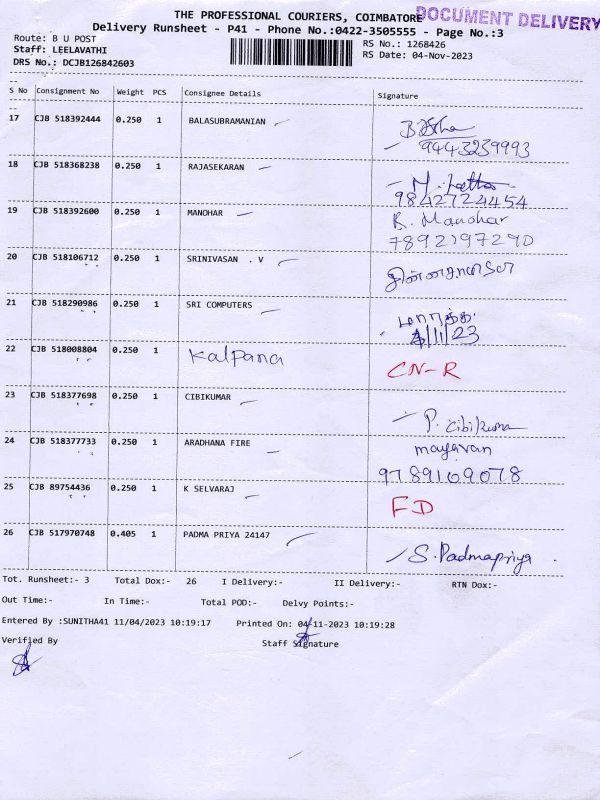 THE PROFESSIONAL COURIERS, COIMBATORE
DOCUMENT DELIVERY
Delivery Runsheet - P41 - Phone No.:0422-3505555 - Page No.:3
Route: B U POST
RS No.: 1268426
Staff: LEELAVATHI
RS Date: 04-Nov-2023
DRS No.: DCJB126842603
S No Consignment No Weight PCS Consignee Details Signature
17 CJB 518392444 0.250 1 BALASUBRAMANIAN
9443239993
18 CJB 518368238 0.250 1 RAJASEKARAN
9842724454
19 CJB 518392600 0.250 1 MANOHAR R. Manohar
7892197290
20 CJB 518106712 0.250 1 SRINIVASAN . V
21 CJB 518290986 0.250 1 SRI COMPUTERS
4/11/23
22 CJB 518008804 0.250 1 Kalpana CN-R
23 CJB 518377698 0.250 1 CIBIKUMAR
P. Cibikuma
24 CJB 518377733 0.250 1 ARADHANA FIRE mayavan
9789109078
25 CJB 89754436 0.250 1 K SELVARAJ FD
26 CJB 517970748 0.405 1 PADMA PRIYA 24147 S. Padmapriya
Tot. Runsheet:- 3 Total Dox:- 26 I Delivery:- II Delivery:- RTN Dox:-
Out Time:- In Time:- Total POD:- Delvy Points:-
Entered By :SUNITHA41 11/04/2023 10:19:17 Printed On: 04-11-2023 10:19:28
Verified By Staff Signature